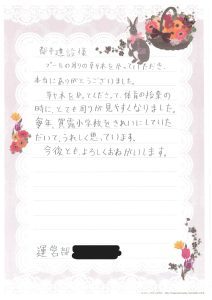 都市建設様
プールの周りの草木をやってくださり、
本当にありがとうございました。
草木をやってくださって、体育の授業の
時に、とても周りが見やすくなりました。
毎年、賀露小学校をきれいにしていた
だいて、うれしく思っています。
今後とも、よろしくおねがいします。
運営部